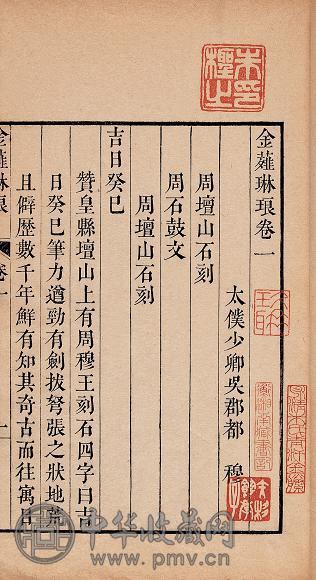 金薤琳琅卷一
太僕少卿吳郡都 穆
周壇山石刻
周石鼓文
周壇山石刻
吉日癸巳
贊皇縣壇山上有周穆王刻石四字曰吉
日癸巳筆力遒勁有劍拔弩張之狀地荒
且僻歷數千年鮮有知其奇古而往寓目
金薤琳琅 卷一 一
中华收藏网
www.pmv.cn